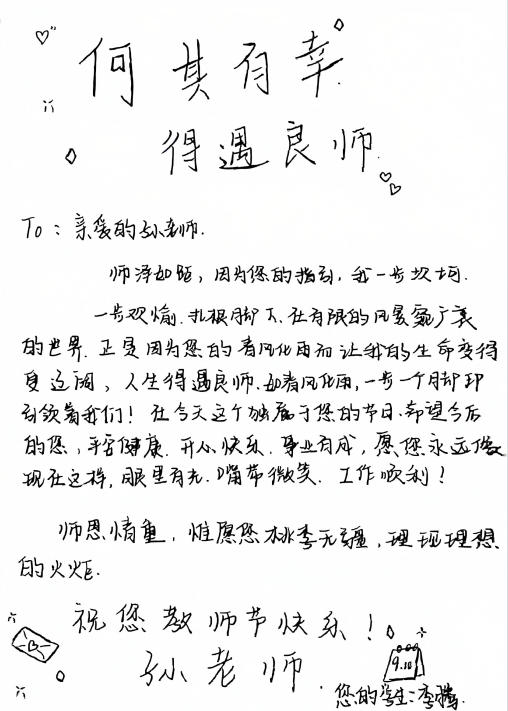 何其有幸
得遇良师.
To：亲爱的孙老师.
师泽如陌，因为您的指引，我一步坎坷.
一步欢愉.扎根脚下.在有限的风景览广袤
的世界.正是因为您的春风化雨而让我的生命变得
更辽阔，人生得遇良师.如春风化雨，一步一个脚印
引领着我们！在今天这个独属于您的节日.希望今后
的您，平安健康.开心快乐.事业有成，愿您永远像
现在这样，眼里有光.嘴带微笑.工作顺利！
师恩情重，惟愿您桃李无疆，理现理想
的火炬.
祝您教师节快乐！
孙老师
9.10
您的学生：李腾.